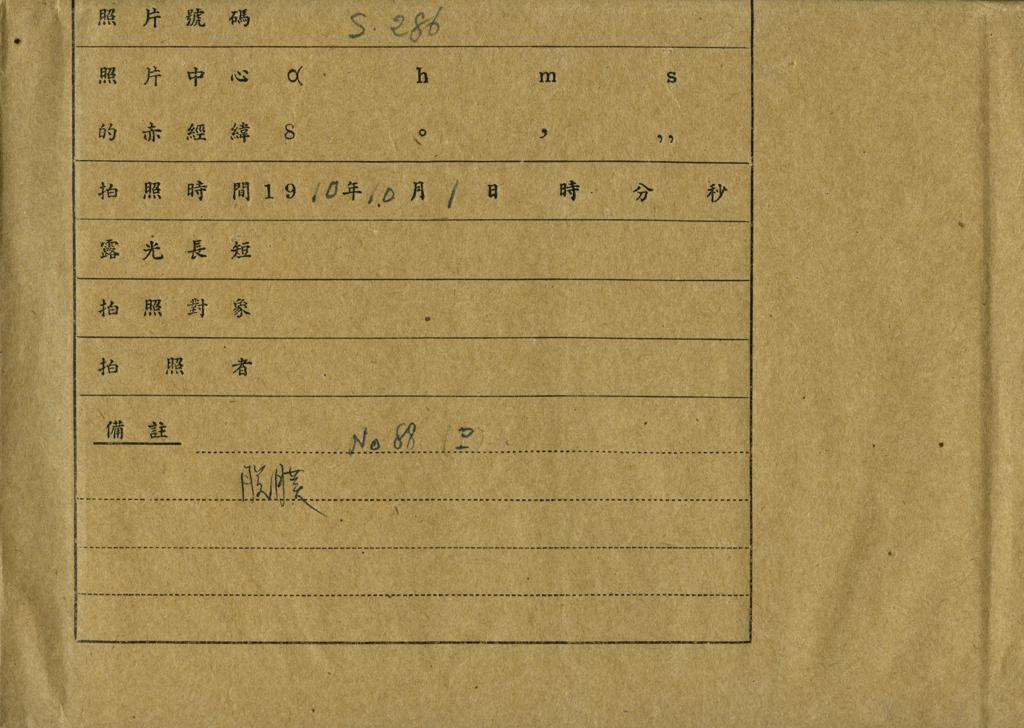 照片號碼 S. 286
照片中心 α h m s
的赤經緯 δ ° ′ ″
拍照時間 1910年10月1日 時 分 秒
露光長短
拍照對象
拍照者
備註 No 88
脫膜